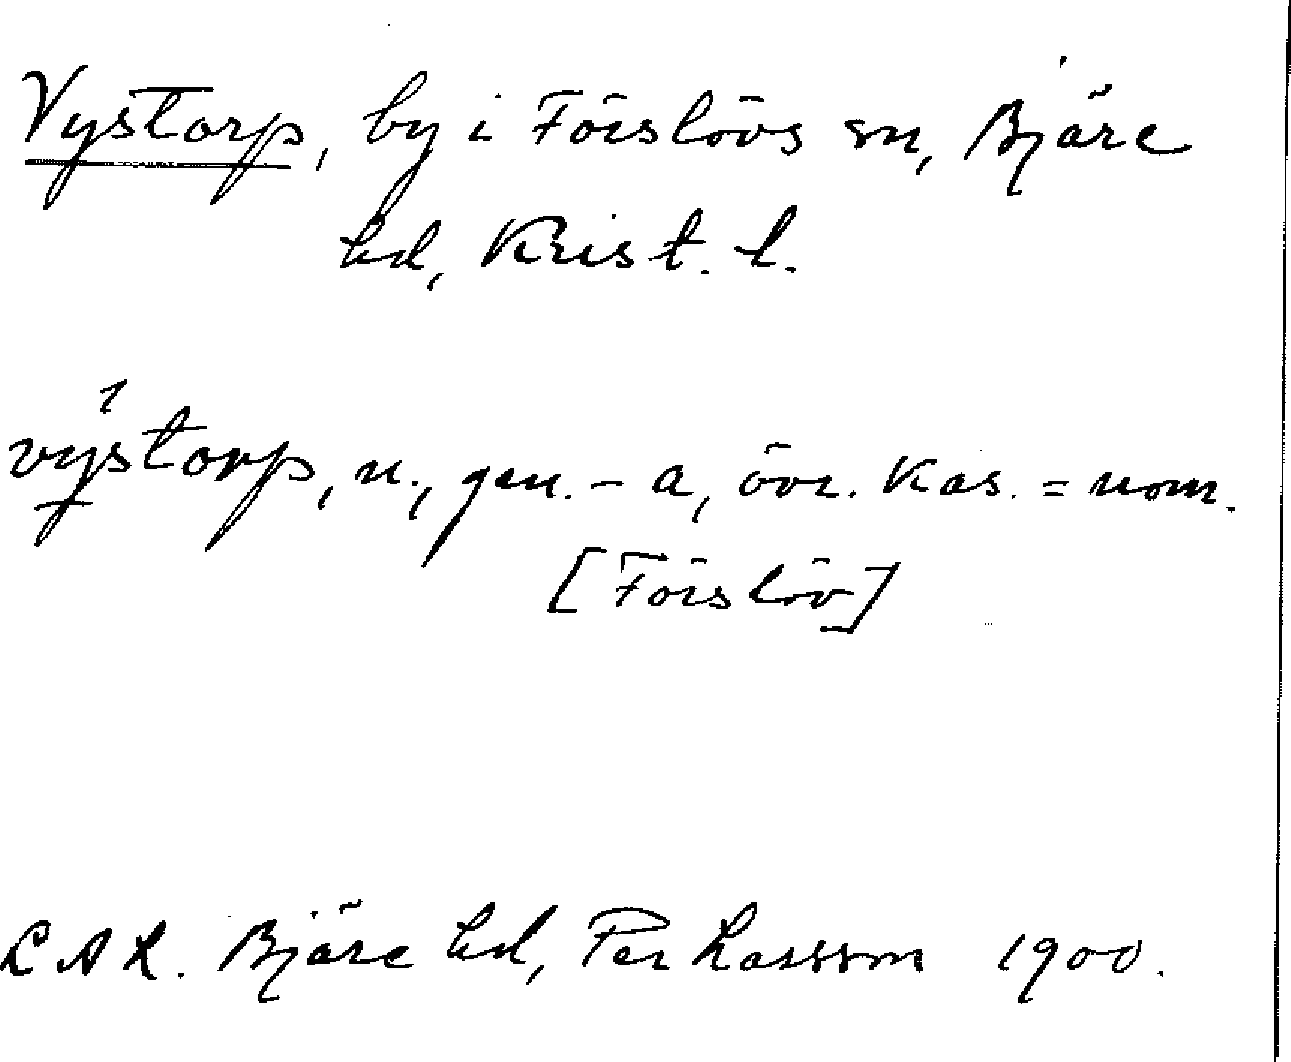 Vystorp, by i Förslövs sn, Bjäre
hd, Krist. l.
výstorp, n., gen. - a, övr. kas. = nom.
[Förslöv]
LAL. Bjäre hd, Per Larsson 1900.